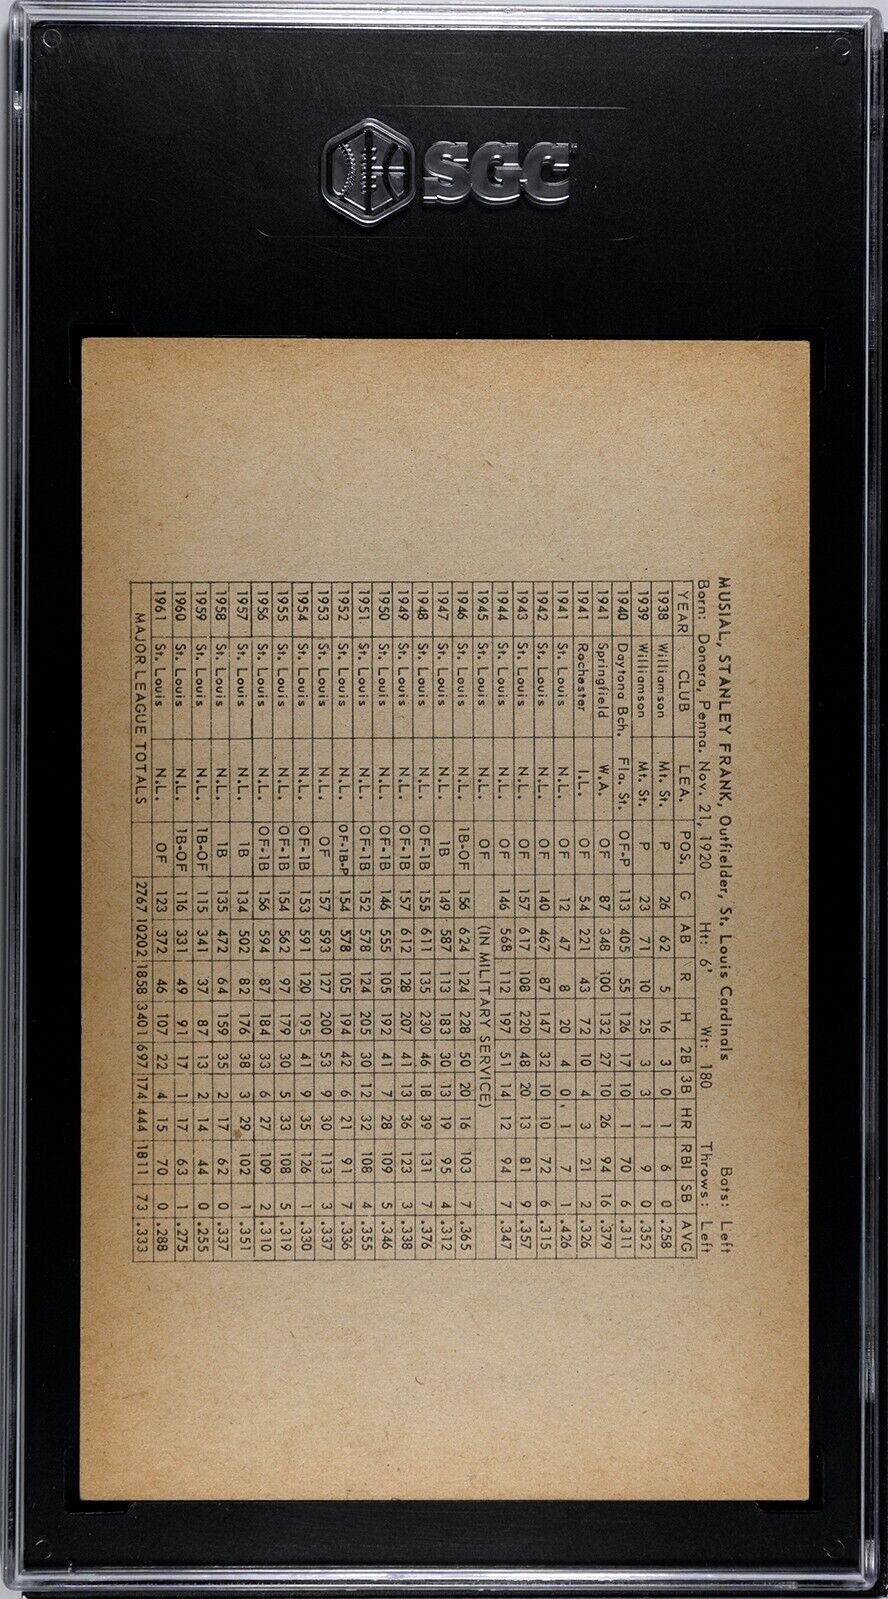 SGC
MUSIAL, STANLEY FRANK, Outfielder, St. Louis Cardinals Bats: Left
Born: Donora, Penna. Nov. 21, 1920 Ht: 6' Wt: 180 Throws: Left
YEAR CLUB LEA. POS. G AB R H 2B 3B HR RBI SB AVG
1938 Williamson Mt. St. P 26 62 5 16 3 0 1 6 0 .258
1939 Williamson Mt. St. P 23 71 10 25 3 3 1 9 0 .352
1940 Daytona Bch. Fla. St. OF-P 113 405 55 126 17 10 1 70 6 .311
1941 Springfield W.A. OF 87 348 100 132 27 10 26 94 16 .379
1941 Rochester I.L. OF 54 221 43 72 10 4 3 21 2 .326
1941 St. Louis N.L. OF 12 47 8 20 4 0 1 7 1 .426
1942 St. Louis N.L. OF 140 467 87 147 32 10 10 72 6 .315
1943 St. Louis N.L. OF 157 617 108 220 48 20 13 81 9 .357
1944 St. Louis N.L. OF 146 568 112 197 51 14 12 94 7 .347
1945 St. Louis N.L. OF (IN MILITARY SERVICE)
1946 St. Louis N.L. 1B-OF 156 624 124 228 50 20 16 103 7 .365
1947 St. Louis N.L. 1B 149 587 113 183 30 13 19 95 4 .312
1948 St. Louis N.L. OF-1B 155 611 135 230 46 18 39 131 7 .376
1949 St. Louis N.L. OF-1B 157 612 128 207 41 13 36 123 3 .338
1950 St. Louis N.L. OF-1B 146 555 105 192 41 7 28 109 5 .346
1951 St. Louis N.L. OF-1B 152 578 124 205 30 12 32 108 4 .355
1952 St. Louis N.L. OF-1B-P 154 578 105 194 42 6 21 91 7 .336
1953 St. Louis N.L. OF 157 593 127 200 53 9 30 113 3 .337
1954 St. Louis N.L. OF-1B 153 591 120 195 41 9 35 126 1 .330
1955 St. Louis N.L. OF-1B 154 562 97 179 30 5 33 108 5 .319
1956 St. Louis N.L. OF-1B 156 594 87 184 33 6 27 109 2 .310
1957 St. Louis N.L. 1B 134 502 82 176 38 3 29 102 1 .351
1958 St. Louis N.L. 1B 135 472 64 159 35 2 17 62 0 .337
1959 St. Louis N.L. 1B-OF 115 341 37 87 13 2 14 44 0 .255
1960 St. Louis N.L. 1B-OF 116 331 49 91 17 1 17 63 1 .275
1961 St. Louis N.L. OF 123 372 46 107 22 4 15 70 0 .288
MAJOR LEAGUE TOTALS 2767 10202 1858 3401 697 174 444 1811 73 .333